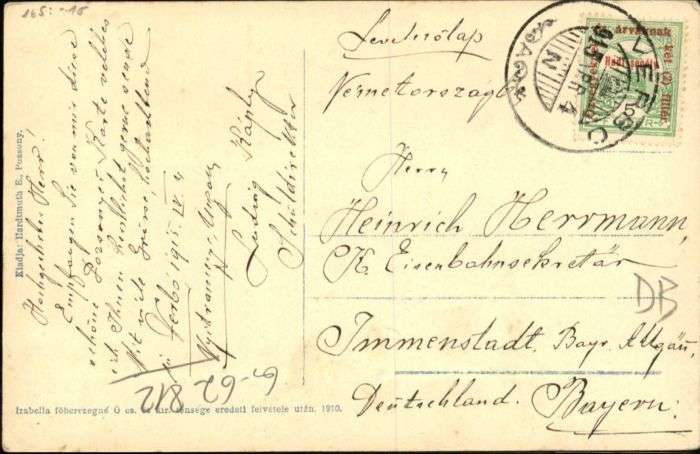 165.- -15
Levelezőlap
Németország
VERBÓ
915 APR 4
N
Árváknak
Hadi segély
két (2) fillér
Herrn
Heinrich Herrmann,
K. Eisenbahnsekretär
Immenstadt, Bayr. Allgäu,
Deutschland. Bayern.
DB
Hochgeehrter Herr!
Empfangen Sie von mir diese
schöne Pozsonyer Karte welche
ich Ihnen gerne sende
Mit viele Grüsse, hochachtend
Verbó 1915. IV. 4
Nyitramegye, Ungarn
Ludwig
Schuldirektor
62-62
812
Kiadja: Hardtmuth E., Pozsony.
Izabella főherczegnő Ő cs. és kir. fensége eredeti felvétele után. 1910.